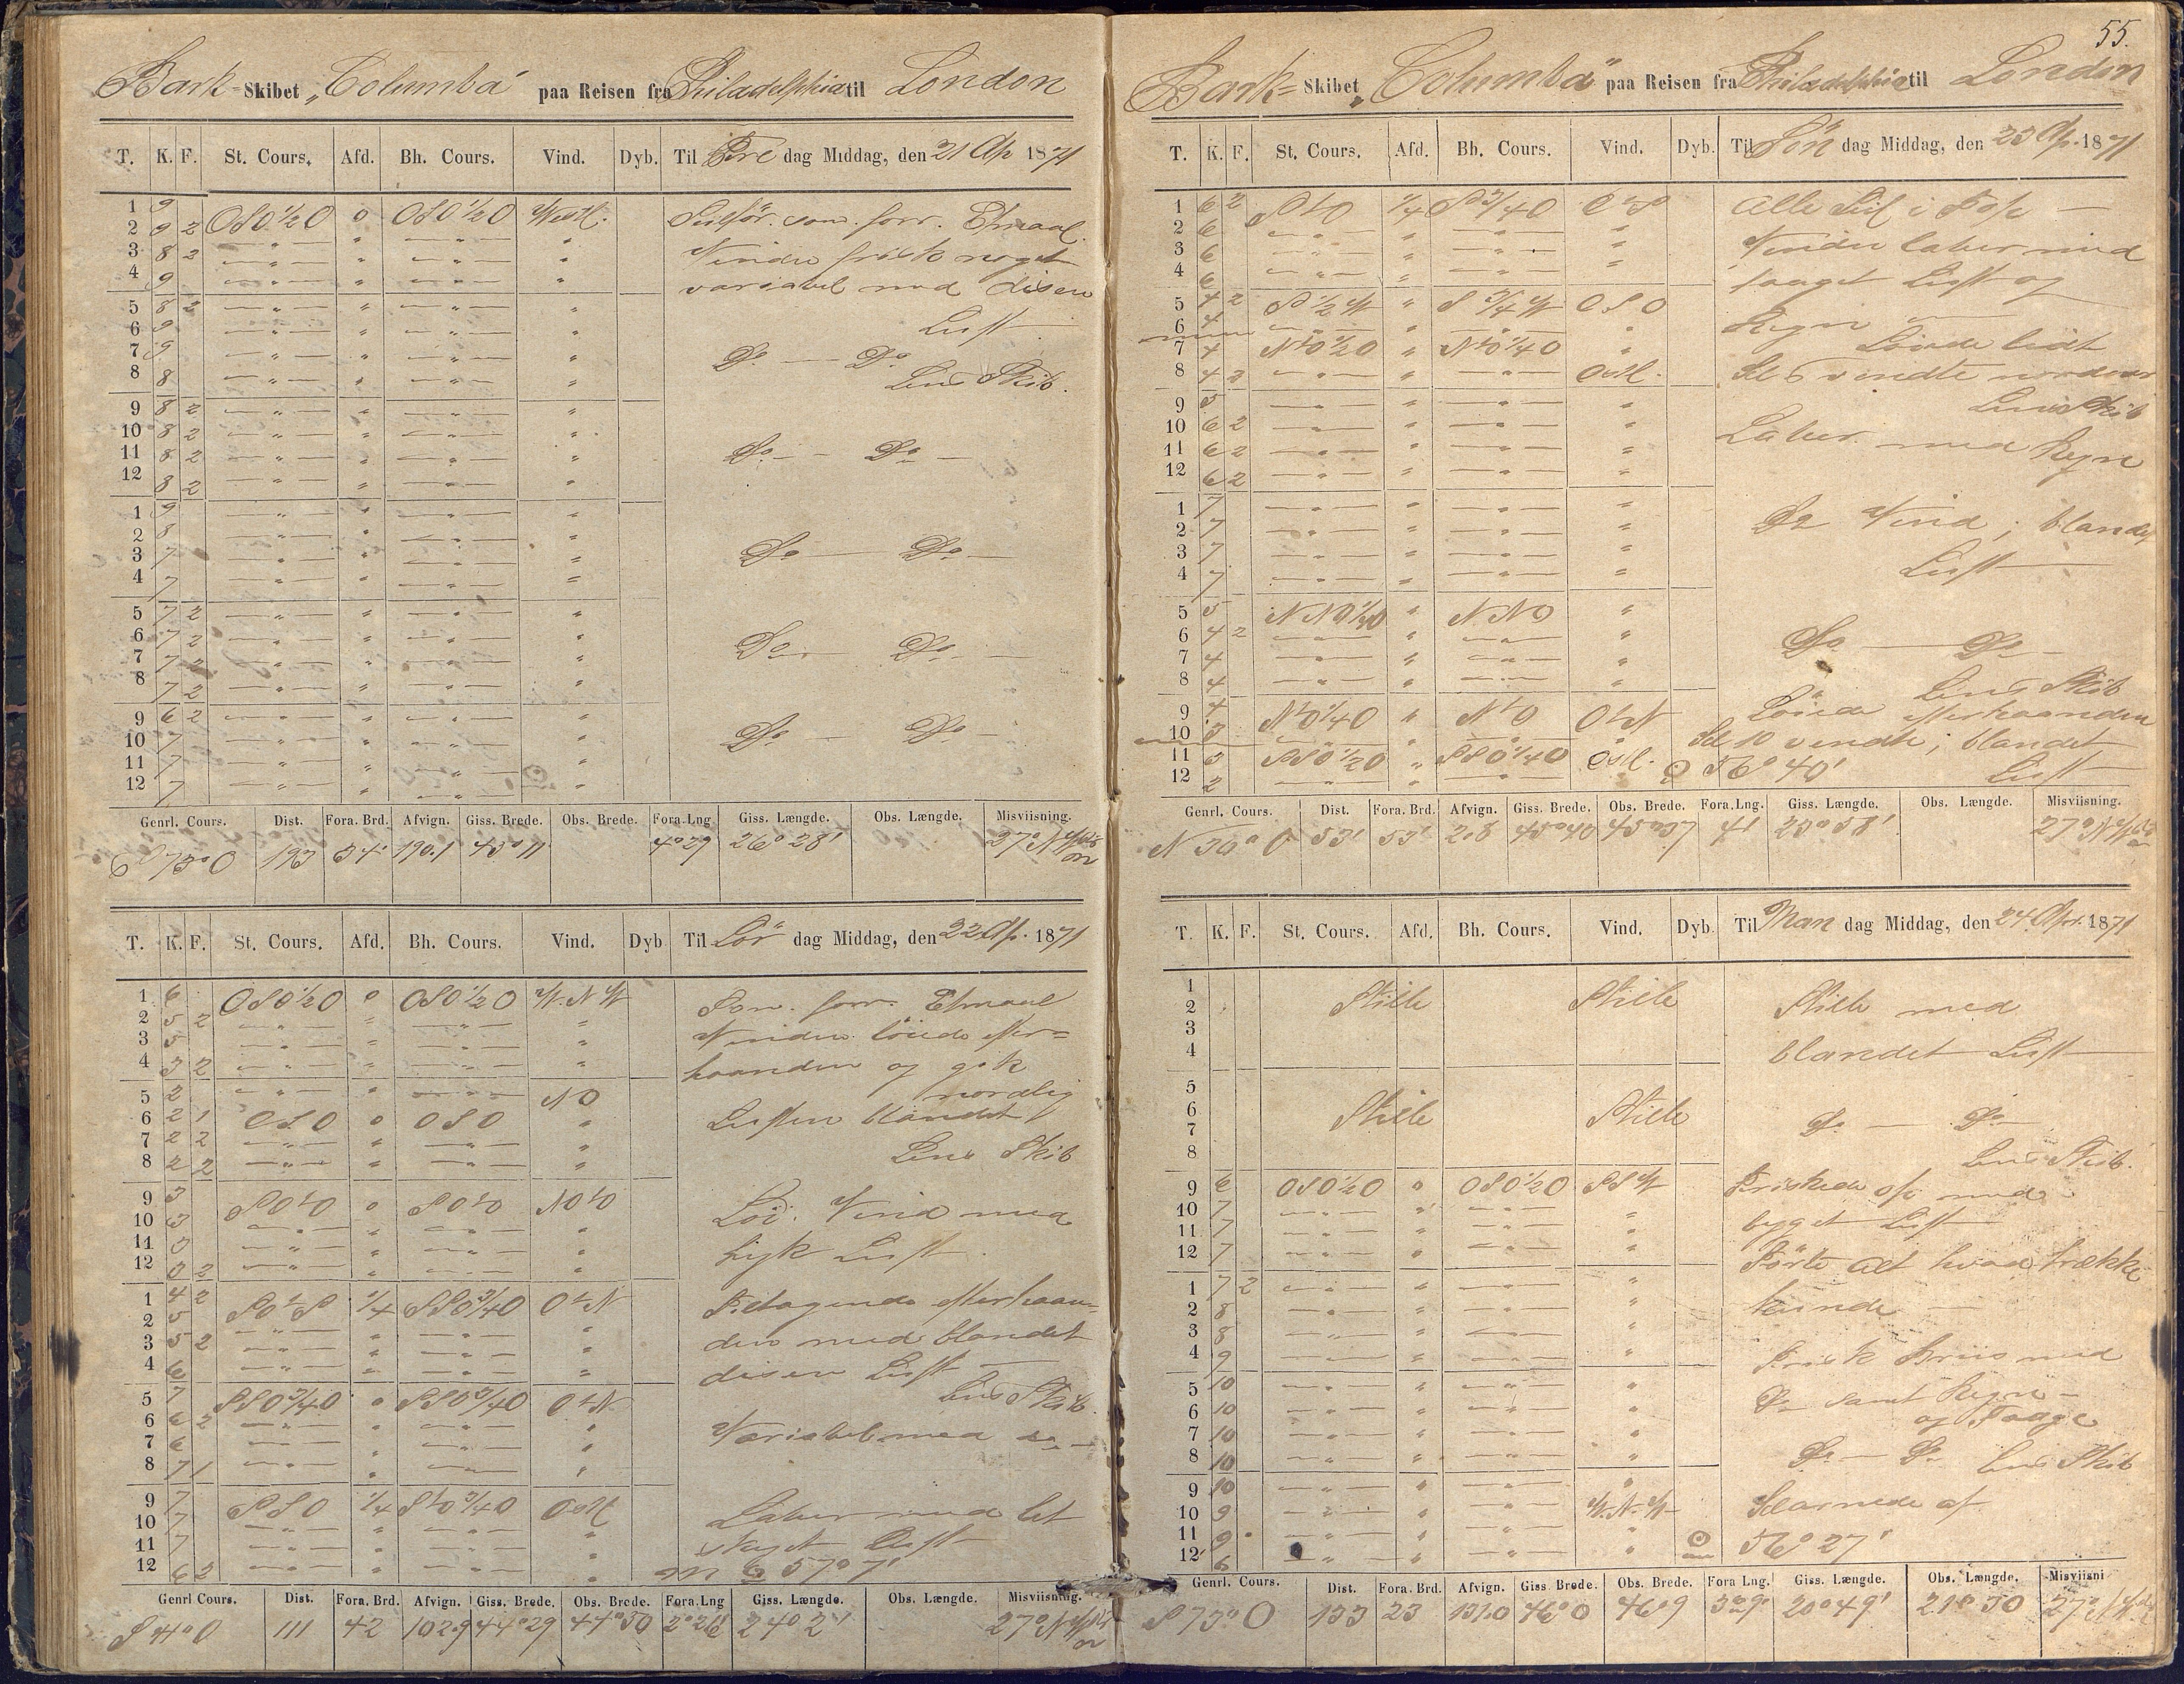 Bark-Skibet „Columba" paa Reisen fra Philadelphia til London
T. K. F. St. Cours. Afd. Bh. Cours. Vind. Dyb. Til Fre dag Middag, den 21 Ap 1871
1 9 OSO½O 0 OSO½O Westl. Seilför. som forr. Etmaal.
2 9 2 — " — " — " — " Vinden frisk noget
3 8 2 — " — " — " — " variabel med disen
4 9 — " — " — " — "
5 8 2 — " — " — " — " Luft
6 9 — " — " — " — "
7 9 — " — " — " — " Do — Do
8 8 — " — " — " — " Lens Skib.
9 8 2 — " — " — " — "
10 8 2 — " — " — " — "
11 8 2 — " — " — " — " Do — Do —
12 8 2 — " — " — " — "
1 9 — " — " — " — "
2 8 — " — " — " — "
3 7 — " — " — " — " Do — Do —
4 7 — " — " — " — "
5 7 2 — " — " — " — "
6 7 2 — " — " — " — " Do — Do —
7 7 2 — " — " — " — "
8 7 2 — " — " — " — "
9 6 2 — " — " — " — "
10 7 — " — " — " — " Do — Do —
11 7 — " — " — " — "
12 7 — " — " — "
Genrl. Cours. Dist. Fora. Brd. Afvign. Giss. Brede. Obs. Brede. Fora. Lng Giss. Længde. Obs. Længde. Misviisning.
S 73° O 193 54' 190.1 43° 11' 4° 29 26° 28' 27° N
T. K. F. St. Cours. Afd. Bh. Cours. Vind. Dyb Til Lör dag Middag, den 22 Ap. 1871
1 6 OSO½O 0 OSO½O W.N.W Som forr. Etmaal
2 5 2 — " — " — " — " Vinden löiede efter=
3 5 — " — " — " — "
4 3 2 — " — " — " — " haanden og gik
5 2 — " — " — " — NO nordlig
6 2 1 OSO 0 OSO " Luften blandet
7 2 2 — " — " — " — "
8 2 2 — " — " — " — " Lens Skib
9 3 SOtO 0 SOtO NOtO
10 3 — " — " — " — " Löi. Vind med
11 3 — " — " — " — " tyk Luft
12 3 2 — " — " — " — "
1 4 2 SOtS ¼ SSO¾O OtN Tiltagende efterhaan=
2 5 — " — " — " — "
3 5 2 — " — " — " — " den med blandet
4 6 — " — " — " — " disen Luft —
5 7 SSO¾O 0 SSO¾O OtN Lens Skib.
6 6 2 — " — " — " — "
7 6 — " — " — " — " Variabel med do —
8 7 1 — " — " — " — "
9 7 SSO ¼ StO¾O Ostl Laber med let
10 7 — " — " — " — "
11 7 — " — " — " — " skyet Luft
12 6 2 — " — " — " — " 57° 7'
Genrl Cours. Dist. Fora. Brd. Afvign. Giss. Brede. Obs. Brede. Fora. Lng Giss. Længde. Obs. Længde. Misviisning.
S 44° O 111 42 102.9 44° 29 44° 30 2° 26 24° 2' 27° N
55.
Bark=Skibet „Columba" paa Reisen fra Philadelphia til London
T. K. F. St. Cours. Afd. Bh. Cours. Vind. Dyb. Til Sön dag Middag, den 23 Ap. 1871
1 6 2 StO ¼ S¾O OtS Alle Seil i Top —
2 6 — " — " — " — " Vinden laber med
3 6 — " — " — " — "
4 6 — " — " — " — " taaget Luft og
5 4 2 S½W " S¾W OSO Regn —
6 4 — " — " — " — " Löiede lidt
7 4 NtO½O " NtO¼O "
8 4 2 — " — " — " — Ostl. Kl 6 vendte nordover
9 5 — " — " — " — " Lens Skib
10 6 2 — " — " — " — " Laber med Regn
11 6 2 — " — " — " — "
12 6 2 — " — " — " — "
1 7 — " — " — " — " Do Vind; blandet
2 7 — " — " — " — "
3 7 — " — " — " — " Luft —
4 7 — " — " — " — "
5 5 NNO½O " NNO "
6 4 2 — " — " — " — " Do — Do —
7 4 — " — " — " — "
8 4 — " — " — " — " Lens Skib
9 4 NtO¼O " NtO OtN Löiede efterhaanden
10 3 — " — " — " — " Kl 10 vendte; blandet
11 3 SSO½O " SSO¼O Ostl. 56° 40' Luft —
12 2 — " — " — " —
Genrl. Cours. Dist. Fora. Brd. Afvign. Giss. Brede. Obs. Brede. Fora. Lng. Giss. Længde. Obs. Længde. Misviisning.
N 30° O 53' 53' 2.8 45° 40 45° 37 4' 23° 58' 27° N
T. K. F. St. Cours. Afd. Bh. Cours. Vind. Dyb. Til Man dag Middag, den 24. Apr. 1871
1
2 Stille Stille Stille med
3
4 blandet Luft —
5
6 Stille Stille Do — Do —
7
8 Lens Skib.
9 6 OSO½O 0 OSO½O SSW Friskede op med
10 7 — " — " — " — "
11 7 — " — " — " — " bygget Luft —
12 7 — " — " — " — " Förte alt hvad trække
1 7 2 — " — " — " — "
2 8 — " — " — " — " kunde —
3 8 — " — " — " — "
4 9 — " — " — " — " Frisk Briis med
5 10 — " — " — " — " Do samt Regn —
6 10 — " — " — " — " og Taage
7 10 — " — " — " — "
8 10 — " — " — " — " Do — Do Lens Skib
9 10 — " — " — " — "
10 9 — " — " — " — W.N.W Klarnede af
11 9 — " — " — " — "
12 6 — " — " — " — " 56° 27'
Genrl. Cours. Dist. Fora. Brd. Afvign. Giss. Brede. Obs. Brede. Fora Lng. Giss. Længde. Obs. Længde. Misviisni
S 73° O 133 23 131.0 46° 0 46° 9 3° 9' 20° 49' 21° 30 27° N